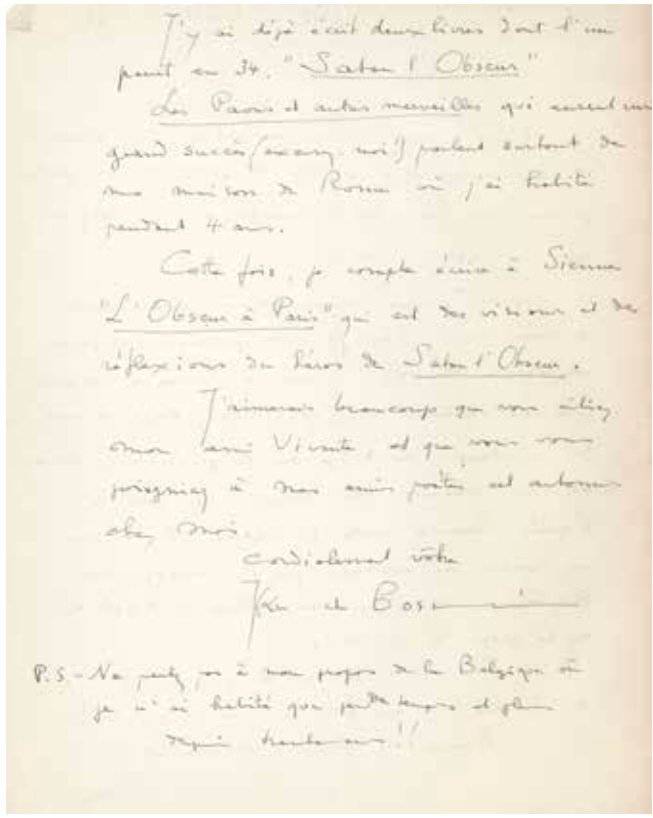 J'y ai déjà écrit deux livres dont l'un
parut en 34. "Satan l'Obscur"
Les Paons et autres merveilles qui eurent un
grand succès (excusez-moi!) parlent surtout de
ma maison de Rome où j'ai habité
pendant 4 ans.
Cette fois, je compte écrire à Sienne
"L'Obscur à Paris" qui est des visions et des
réflexions du héros de Satan l'Obscur.
J'aimerais beaucoup que vous
mon ami et que vous vous
joigniez à mes amis poètes cet automne
chez moi.
cordialement vôtre
de Bos
P.S. - Ne parlez pas à mon propos de la Belgique où
je n'ai habité que peu de temps et plus
depuis trente ans!!